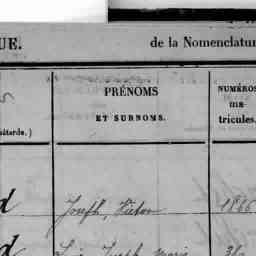 UE. de la Nomenclatur
PRÉNOMS
ET SURNOMS.
NUMÉROS
ma-
tricules.
bâtarde.)
d Joseph, Victor 1866
d Joseph Marie